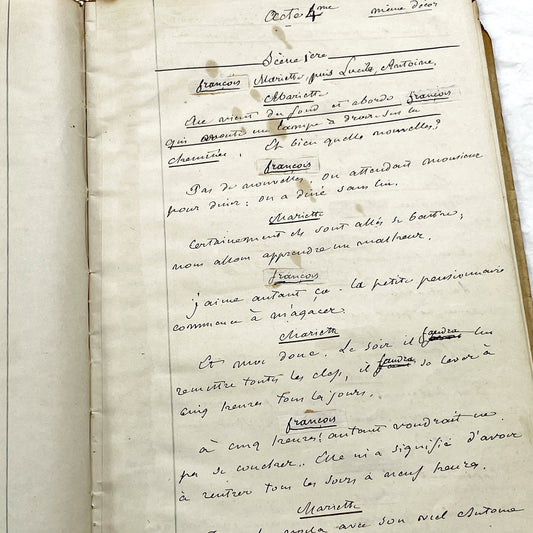 Acte 4me même décor
Scène 1ère
françois Mariette, puis Lucile, Antoine.
Mariette
Elle vient du fond et aborde françois
qui monte une lampe à droite sur la
cheminée. Et bien quelles nouvelles?
françois
Pas de nouvelles. on attendait monsieur
pour diner: on a diné sans lui.
Mariette
Certainement ils sont allés se battre,
nous allons apprendre un malheur.
françois
j'aime autant ça. la petite pensionnaire
commence à m'agacer.
Mariette
Et moi donc. Le soir il faudra lui
remettre toutes les clefs, il faudra se lever à
cinq heures tous les jours.
françois
à cinq heures! autant voudrait ne
pas se coucher.. Elle m'a signifié d'avoir
à rentrer tous les soirs à neuf heures.
Mariette
avec son oncle Antoine